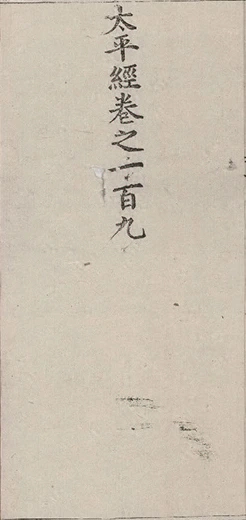 太平經卷之一百九